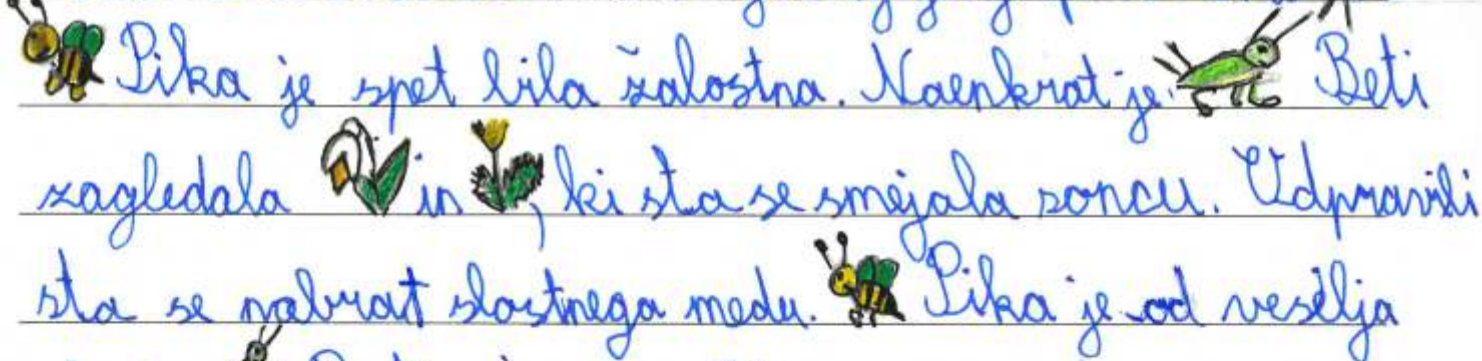 Pika je spet bila žalostna. Naenkrat je Beti
zagledala in , ki sta se smejala soncu. Odpravili
sta se nabrat slastnega medu. Pika je od veselja